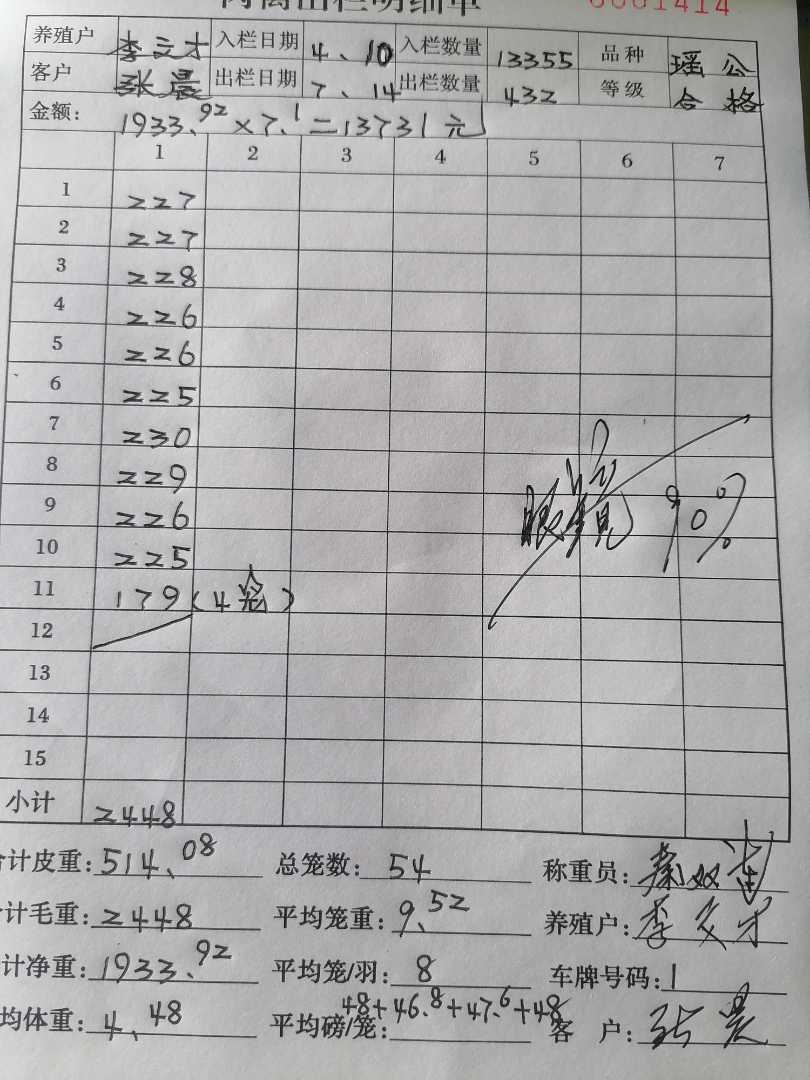 肉禽出栏明细单 0001414
养殖户 李文才 入栏日期 4、10 入栏数量 13355 品种 瑶公
客户 张晨 出栏日期 7、14 出栏数量 432 等级 合格
金额: 1933.92×7.1=13731元
1 2 3 4 5 6 7
1 227
2 227
3 228
4 226
5 226
6 225
7 230
8 229
9 226
10 225
11 179(4笼)
12
13
14
15
小计 2448
90%
合计皮重: 514.08 总笼数: 54 称重员:
合计毛重: 2448 平均笼重: 9.52 养殖户: 李文才
合计净重: 1933.92 平均笼/羽: 8 车牌号码: 1
平均体重: 4.48 平均磅/笼: 48+46.8+47.6+48 客 户: 张晨